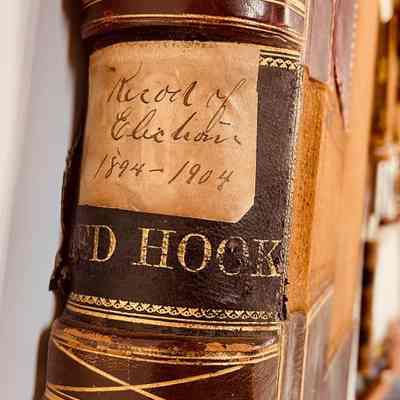 Record of
Elections
1894-1904
ED HOOK